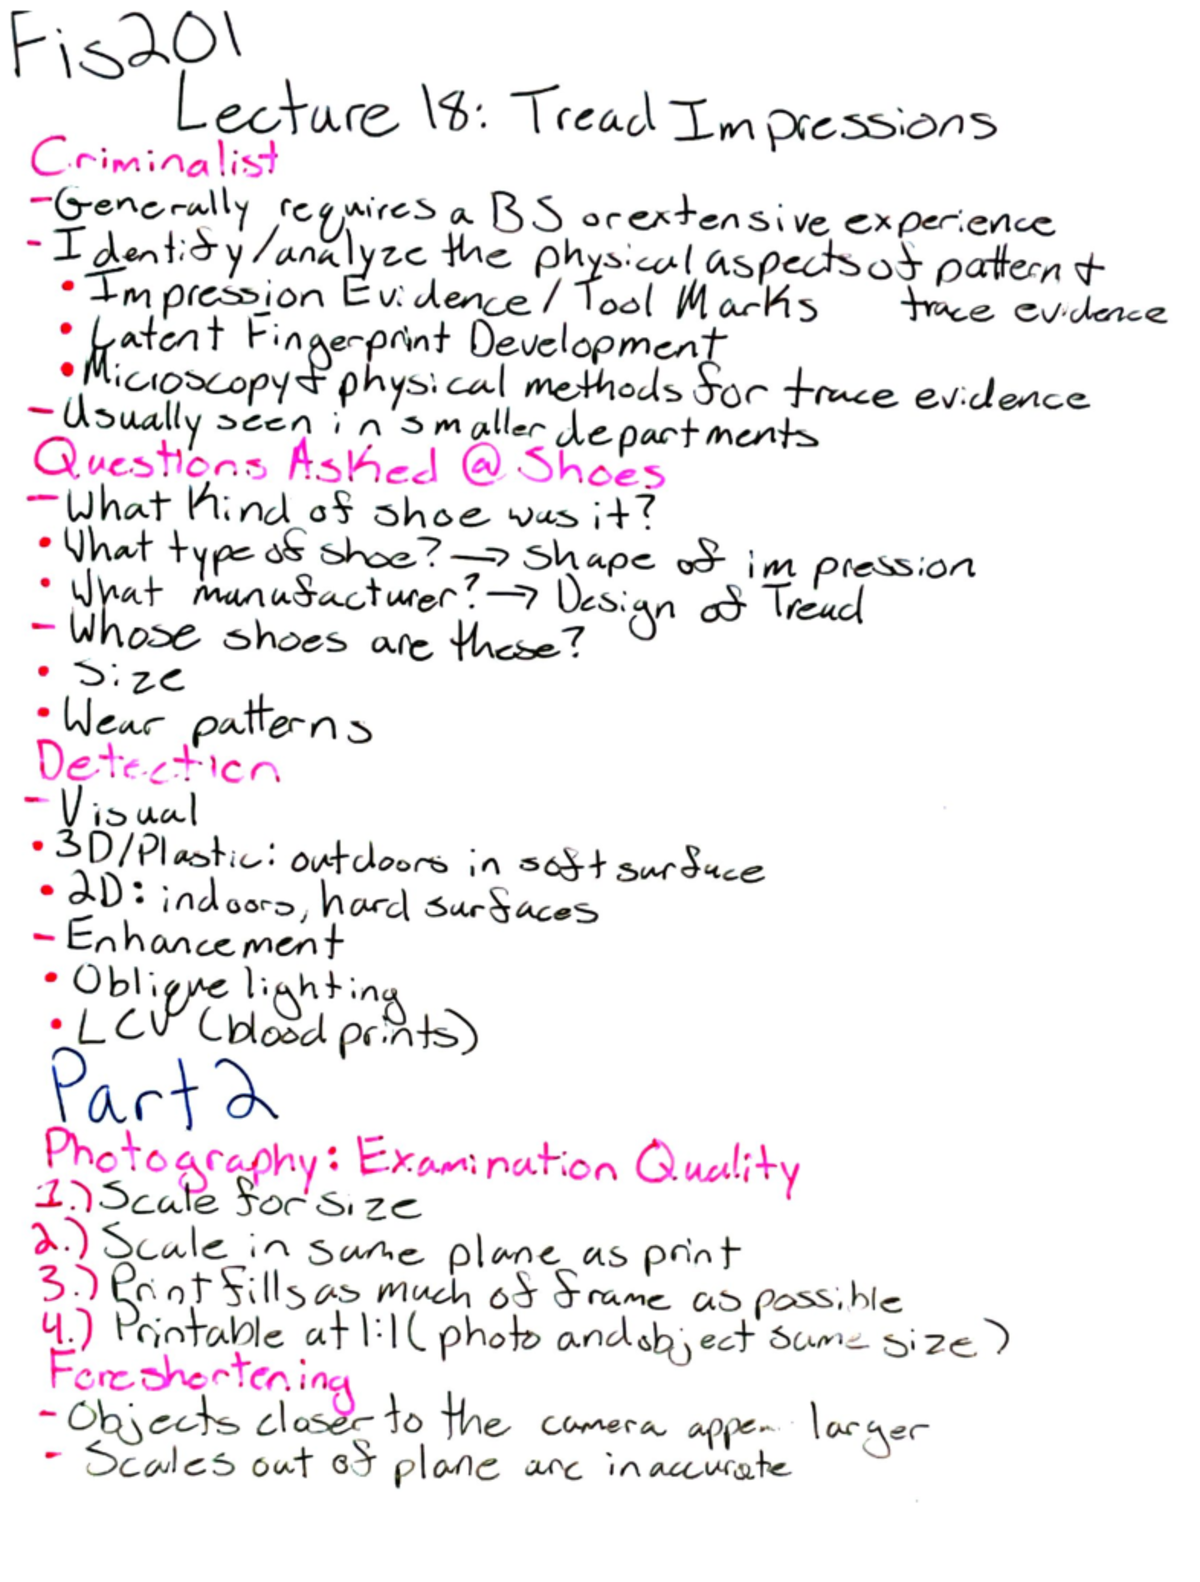 Fis201
Lecture 18: Tread Impressions
Criminalist
- Generally requires a BS or extensive experience
- Identify/analyze the physical aspects of pattern &
trace evidence
• Impression Evidence / Tool Marks
• Latent Fingerprint Development
• Microscopy & physical methods for trace evidence
- Usually seen in smaller departments
Questions Asked @ Shoes
- What Kind of shoe was it?
• What type of shoe? → shape of impression
• What manufacturer? → Design of Tread
- Whose shoes are these?
• Size
• Wear patterns
Detection
- Visual
• 3D/Plastic: outdoors in soft surface
• 2D: indoors, hard surfaces
- Enhancement
• Oblique lighting
• LCV (blood prints)
Part 2
Photography: Examination Quality
1.) Scale for size
2.) Scale in same plane as print
3.) Print fills as much of frame as possible
4.) Printable at 1:1 (photo and object same size)
Foreshortening
- Objects closer to the camera larger
- Scales out of plane are inaccurate